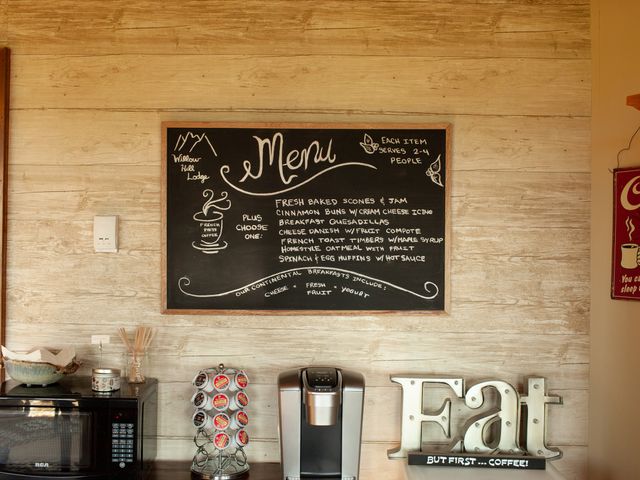 Willow
Hill
Lodge
Menu
EACH ITEM
SERVES 2-4
PEOPLE
FRENCH
PRESS
COFFEE
PLUS
CHOOSE
ONE:
FRESH BAKED SCONES & JAM
CINNAMON BUNS W/CREAM CHEESE ICING
BREAKFAST QUESADILLAS
CHEESE DANISH W/FRUIT COMPOTE
FRENCH TOAST TIMBERS W/MAPLE SYRUP
HOMESTYLE OATMEAL WITH FRUIT
SPINACH & EGG MUFFINS W/HOT SAUCE
OUR CONTINENTAL BREAKFASTS INCLUDE:
CHEESE • FRESH FRUIT • YOGURT
RCA
Eat
BUT FIRST... COFFEE!
You ca
sleep